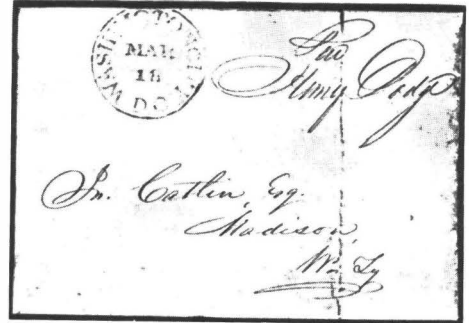 WASHINGTON CITY
MAR
18
D.C.
Free
Henry Dodge
Jn. Catlin, Esq.
Madison,
Wn. Ty